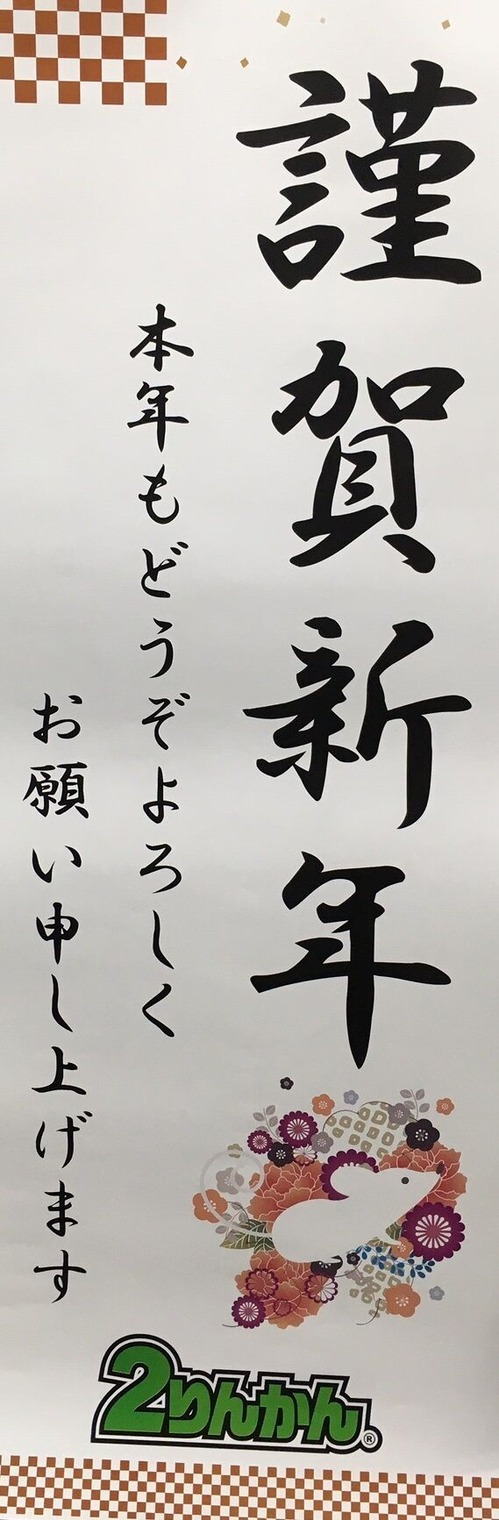 謹賀新年
本年もどうぞよろしく
お願い申し上げます
2りんかん®